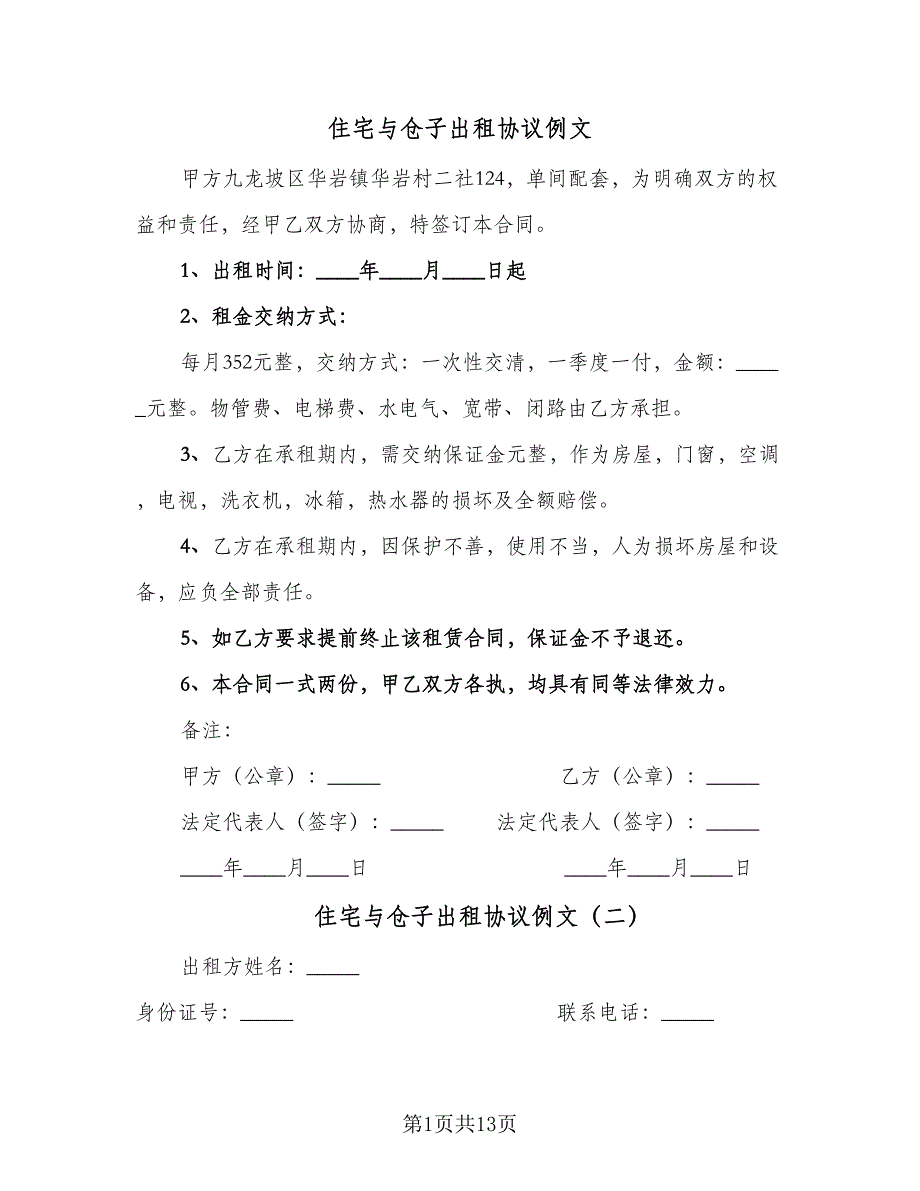 住宅与仓子出租协议例文
甲方九龙坡区华岩镇华岩村二社124，单间配套，为明确双方的权
益和责任，经甲乙双方协商，特签订本合同。
1、出租时间：____年____月____日起
2、租金交纳方式：
每月352元整，交纳方式：一次性交清，一季度一付，金额：____
_元整。物管费、电梯费、水电气、宽带、闭路由乙方承担。
3、乙方在承租期内，需交纳保证金元整，作为房屋，门窗，空调
，电视，洗衣机，冰箱，热水器的损坏及全额赔偿。
4、乙方在承租期内，因保护不善，使用不当，人为损坏房屋和设
备，应负全部责任。
5、如乙方要求提前终止该租赁合同，保证金不予退还。
6、本合同一式两份，甲乙双方各执，均具有同等法律效力。
备注：
甲方（公章）：_____ 乙方（公章）：_____
法定代表人（签字）：_____ 法定代表人（签字）：_____
____年____月____日 ____年____月____日
住宅与仓子出租协议例文（二）
出租方姓名：_____
身份证号：_____ 联系电话：_____
第1页共13页